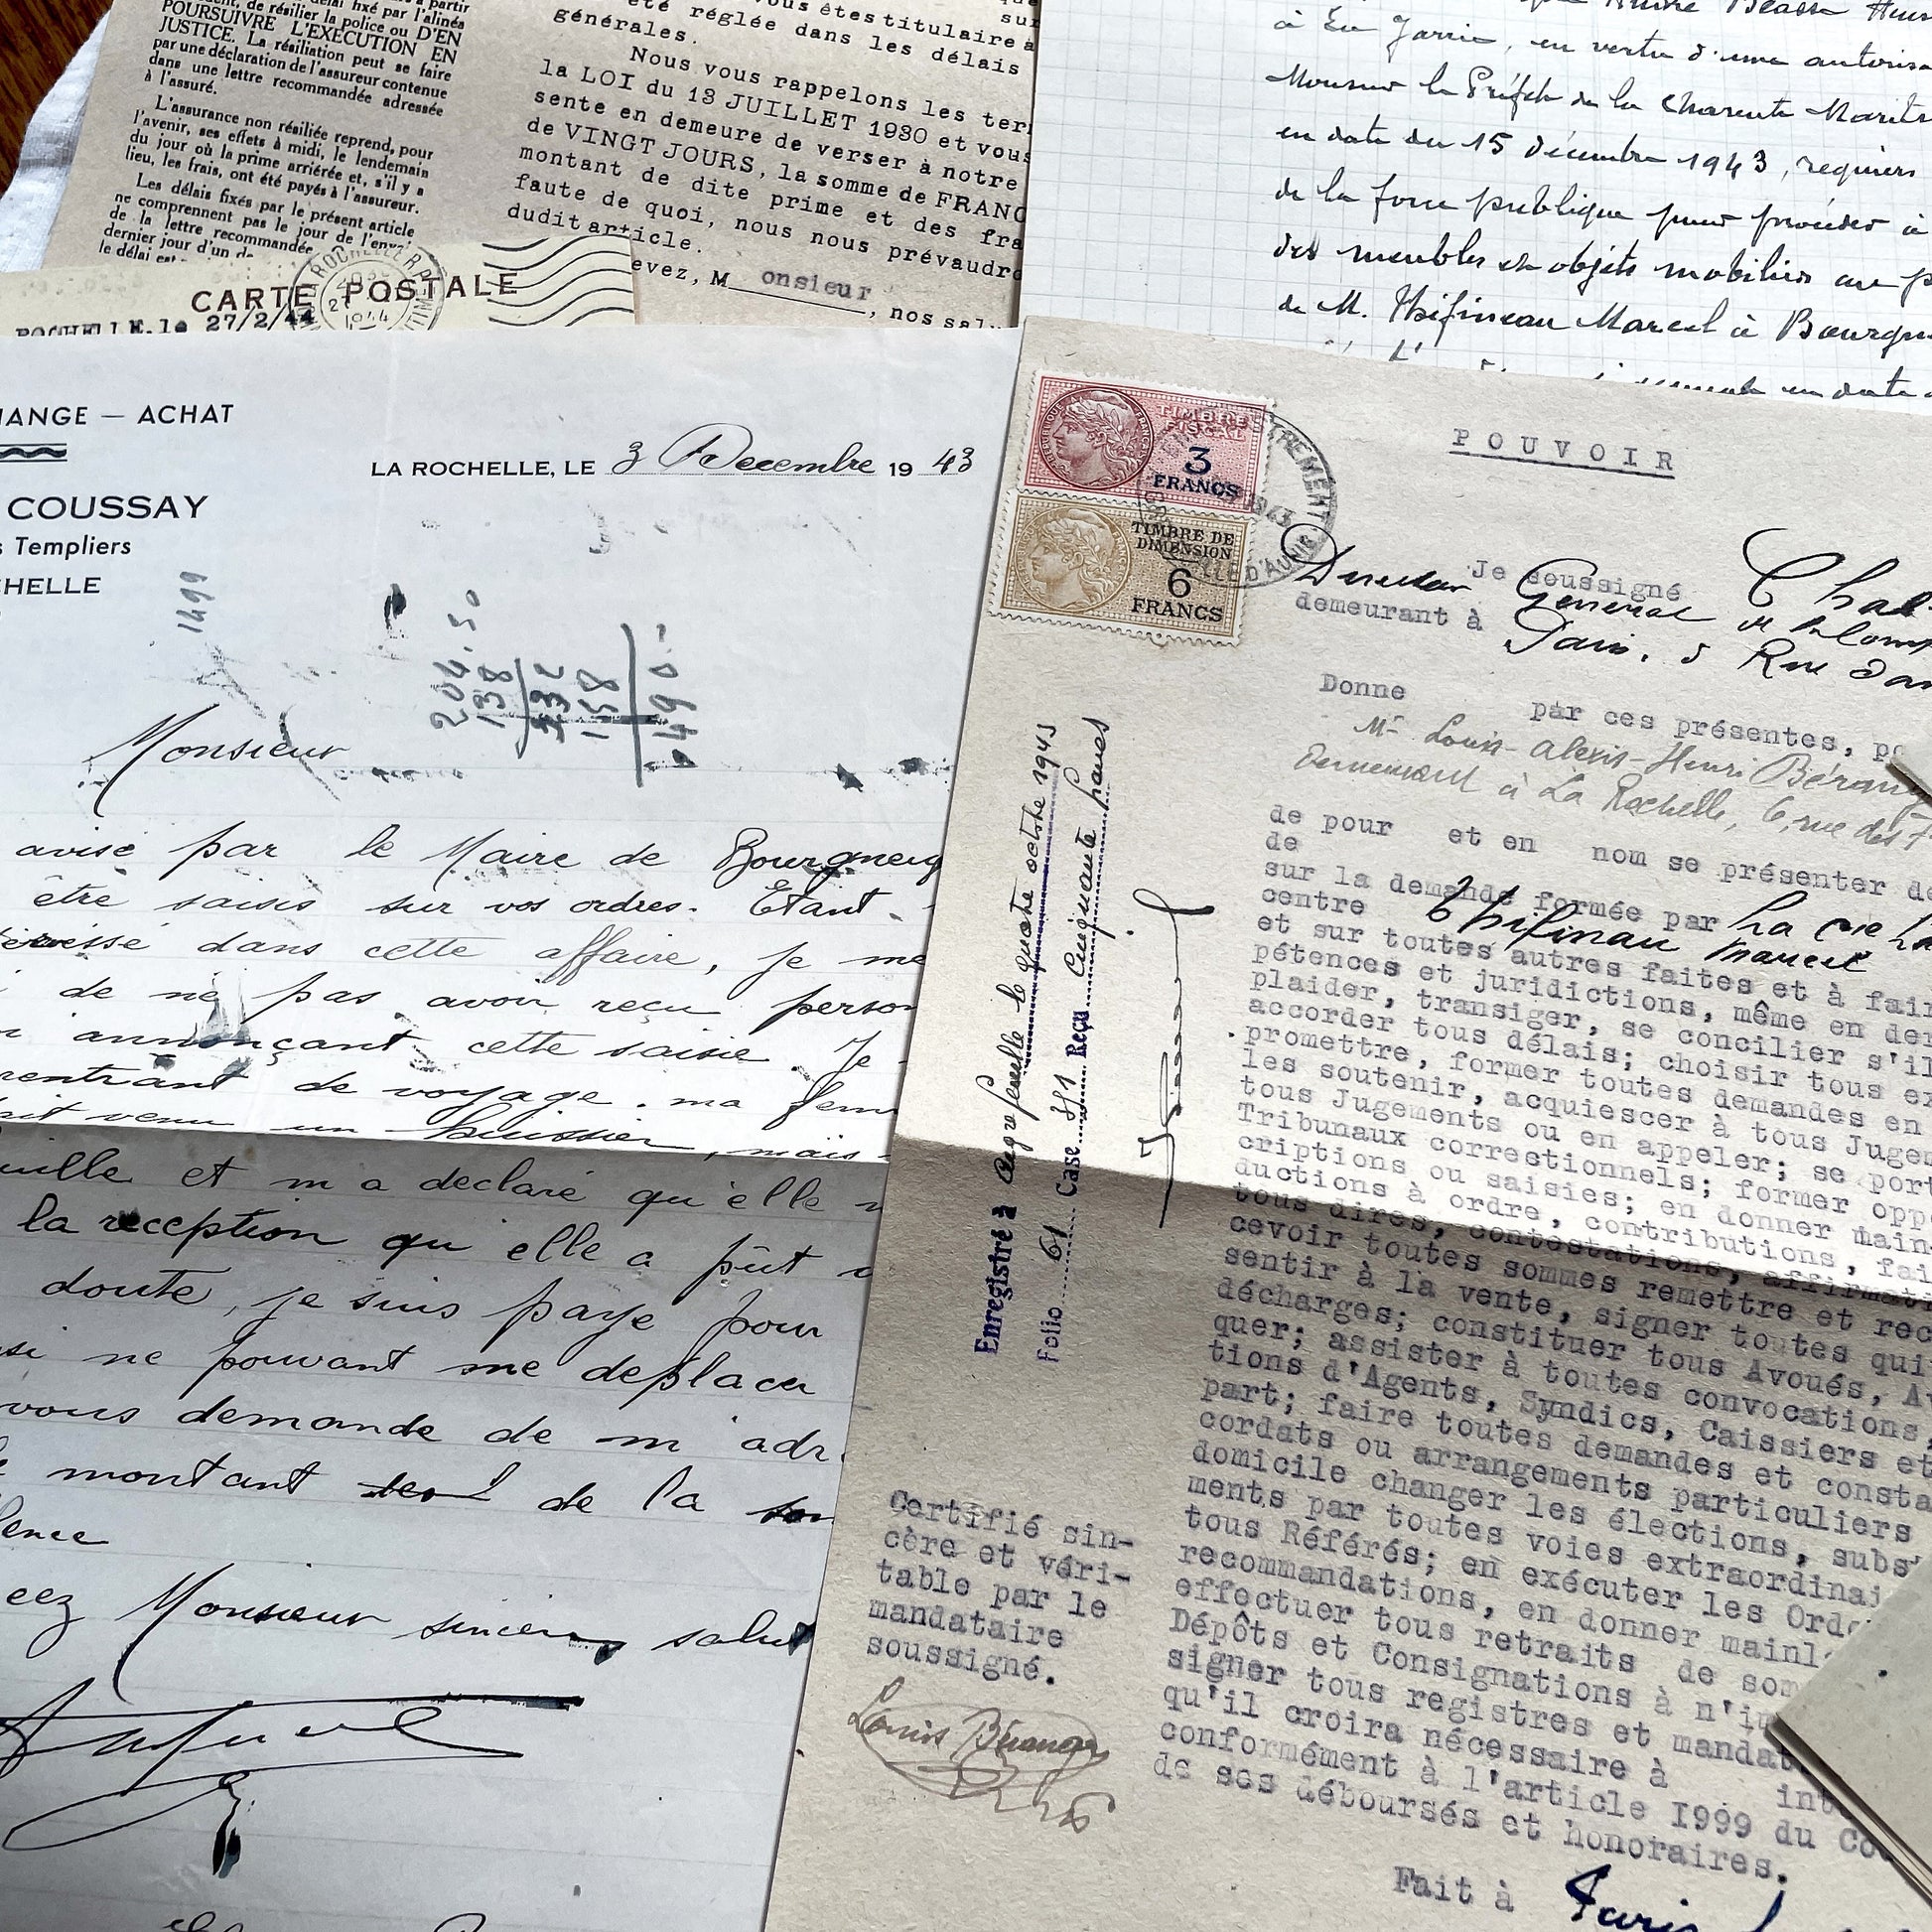 dent, de résilier la police ou D'EN
POURSUIVRE L'EXECUTION EN
JUSTICE. La résiliation peut se faire
par une déclaration de l'assureur contenue
dans une lettre recommandée adressée
à l'assuré.
L'assurance non résiliée reprend, pour
l'avenir, ses effets à midi, le lendemain
du jour où la prime arriérée et, s'il y a
lieu, les frais, ont été payés à l'assureur.
Les délais fixés par le présent article
ne comprennent pas le jour de l'envoi
de la lettre recommandée
dernier jour d'un
le délai est
vous êtes titulaire à
été réglée dans les délais
générales.
Nous vous rappelons les ter
la LOI du 13 JUILLET 1930 et vous
sente en demeure de verser à notre
de VINGT JOURS, la somme de FRANC
montant de dite prime et des fra
faute de quoi, nous nous prévaudro
dudit article.
evez, Monsieur, nos salu
CARTE POSTALE
ROCHELLE, le 27/2/44
en vertu d'une autoris
Monsieur le Préfet de la Charente Marit
en date du 15 décembre 1943, requiers
de la force publique pour procéder à
des meubles et objets mobiliers au p
de M. Thifineau Marcel à Bourgn
HANGE — ACHAT
LA ROCHELLE, LE 3 Decembre 1943
COUSSAY
s Templiers
CHELLE
1499
204.50
138
158
490
Monsieur
avisé par le Maire de Bourgneu
être saisis sur vos ordres. Etant
dans cette affaire, je me
de ne pas avoir reçu person
annonçant cette saisie Je
rentrant de voyage. ma fem
ait venu un huissier, mais
uille et m a declaré qu'elle
la reception qu elle a pût
doute, je suis paye pour
ne pouvant me deplacer
vous demande de m adr
montant de la
lence
eez Monsieur sinceres salut
POUVOIR
TIMBRE FISCAL
3
FRANCS
TIMBRE DE
DIMENSION
6
FRANCS
Je soussigné Chal
Directeur General de la Comp
demeurant à Paris, 5 Rue
Donne par ces présentes, po
Mr Louis-Alexis-Henri Bérang
demeurant à La Rochelle, 6, rue des
de pour et en nom se présenter de
de
sur la demande formée par La Cie
centre Thifinau Marcel
et sur toutes autres faites et à fair
pétences et juridictions, même en der
plaider, transiger, se concilier s'il
accorder tous délais; choisir tous ex
promettre, former toutes demandes en
les soutenir, acquiescer à tous Jugem
tous Jugements ou en appeler; se port
Tribunaux correctionnels; former opp
criptions ou saisies; en donner main
ductions à ordre, contributions, fai
tous dires, contestations, affirmat
cevoir toutes sommes remettre et rec
sentir à la vente, signer toutes qui
décharges; constituer tous Avoués, Av
quer; assister à toutes convocations,
tions d'Agents, Syndics, Caissiers et
part; faire toutes demandes et consta
cordats ou arrangements particuliers
domicile changer les élections, subs
ments par toutes voies extraordinai
tous Référés; en exécuter les Ord
recommandations, en donner mainl
effectuer tous retraits de som
Dépôts et Consignations à n'i
signer tous registres et mandat
qu'il croira nécessaire à int
conformément à l'article 1999 du Co
de ses déboursés et honoraires.
Fait à Paris
Enregistré à Aigrefeuille le quatre octobre 1943
Folio 61 Case 381 Reçu Cinquante francs
Certifié sin-
cère et véri-
table par le
mandataire
soussigné.
Louis Béranger